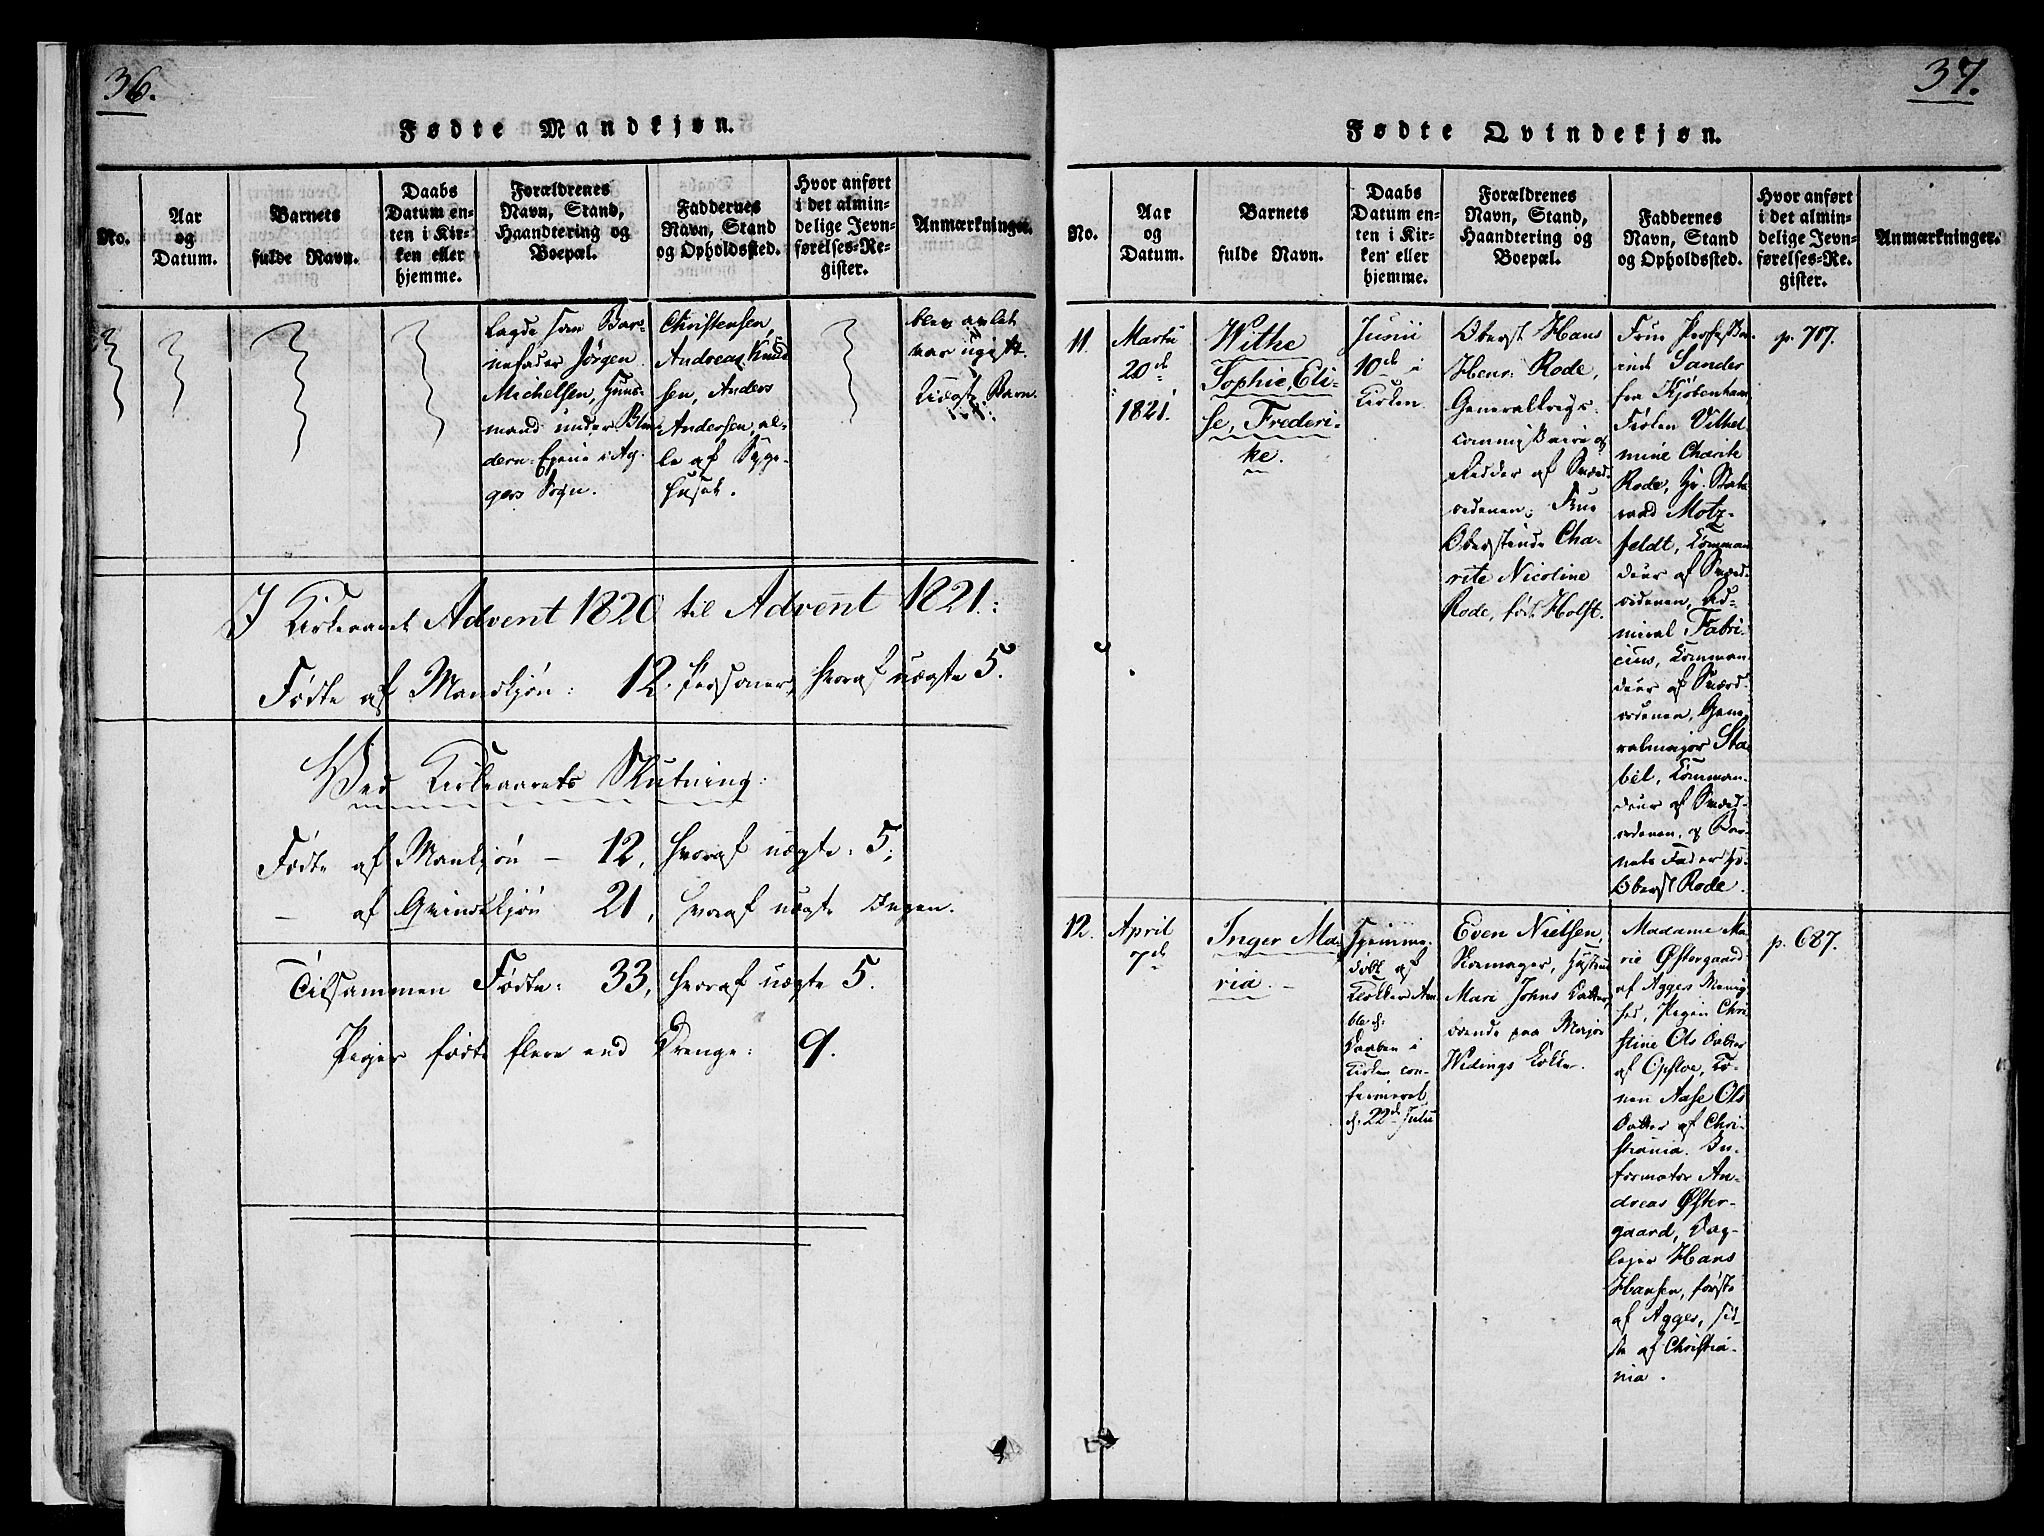 36.
Fødte Mandkjøn.
No.
Aar
og
Datum.
Barnets
fulde Navn.
Daabs
Datum en-
ten i Kir-
ken eller
hjemme.
Forældrenes
Navn, Stand,
Haandtering og
Boepæl.
Faddernes
Navn, Stand
og Opholdssted.
Hvor anført
i det almin-
delige Jevn-
førelses-Re-
gister.
Anmærkninger.
lagde som Bar-
nefader Jørgen
Michelsen, Huus-
mand under
i Ag-
gers Sogn.
Christensen,
Andreas Knud
sen, Anders
Andersen, al-
le af Syge-
huset.
blev avlet
var ugift.
Uægte Barn.
I Kirkeaaret Advent 1820 til Advent 1821:
Fødte af Mandkjøn: 12. Personer, hvoraf uægte 5.
Ved Kirkeaarets Slutning:
Fødte af Mankjøn - 12, hvoraf uægte: 5;
- af Qvindekjøn 21, hvoraf uægte Ingen.
Tilsammen Fødte: 33, hvoraf uægte 5.
Piger fødte flere end Drenge: 9.
37.
Fødte Qvindekjøn.
No.
Aar
og
Datum.
Barnets
fulde Navn.
Daabs
Datum en-
ten i Kir-
ken eller
hjemme.
Forældrenes
Navn, Stand,
Haandtering og
Boepæl.
Faddernes
Navn, Stand
og Opholdssted.
Hvor anført
i det almin-
delige Jevn-
førelses-Re-
gister.
Anmærkninger.
11.
Martii
20de
1821.
Withe
Sophie, Eli-
se, Frederi-
ke.
Junii
10de i
Kirken.
Oberst Hans
Henr: Rode,
Generalkrigs-
commissaire og
Ridder af Sværd-
ordenen, Frue
Oberstinde Cha-
rite Nicoline
Rode, født Holst.
Frue Professor-
inde Sander
fra Kjøbenhavn
Frøken Vilhel
mine Charite
Rode, Hr. Stats
raad Motz-
feldt, Komman
deur af Sværd-
ordenen, Ad-
miral Fabri-
cius, Komman
deur af Sværd-
ordenen, Gene
ralmajor Sta
bel, Komman-
deur af Sværd-
ordenen, og Bar-
nets Fader Hr.
Oberst Rode.
p. 707.
12.
April
7de
Inger Ma-
ria. -
Hjemme-
døbt af
Klokker Am
ble d:
Daaben i
Kirken con-
firmeret
d: 22de Julii
Even Nielsen,
Skomager, Hustrue
Mari Johns Datter,
boende paa Major
Wedings Løkke.
Madame Ma
rie Østergaard
af Aggers Menig
hed, Pigen Chri
stine Ols Datter
af Opsloe, Ko-
nen Aase Ols
Datter af Chri-
stiania. In-
formator An-
dreas Øster-
gaard, Dag-
lejer Hans
Hansen, første
af Agger, sid-
ste af Christia-
nia.
p. 687.